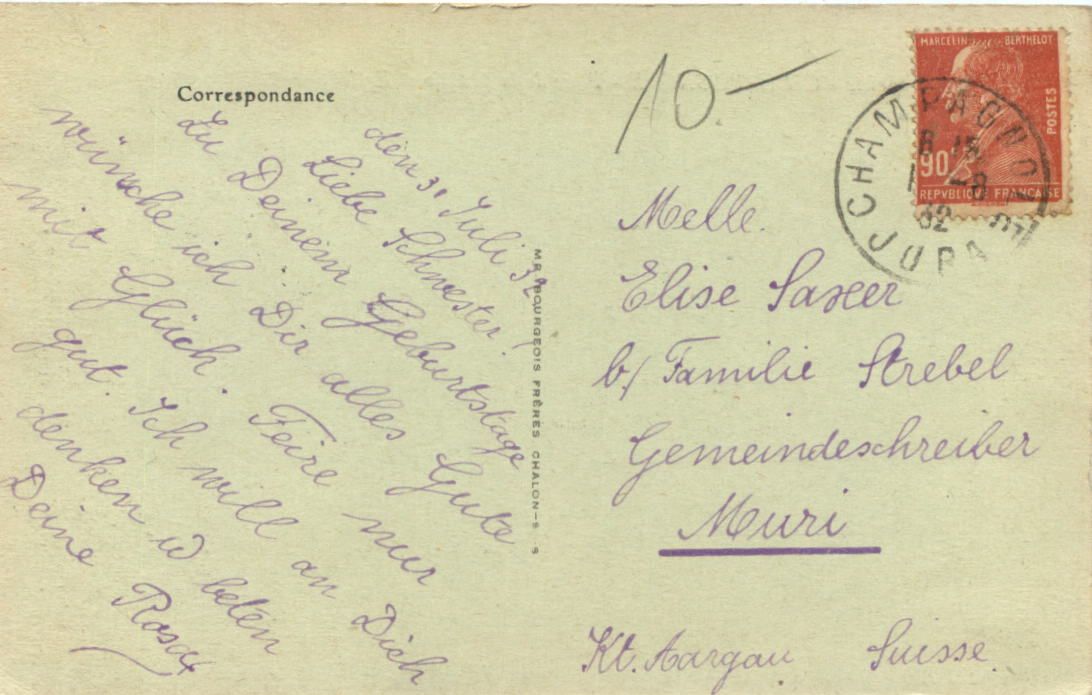 Correspondance
den 31 Juli 32
Liebe Schwester!
Zu Deinem Geburtstage
wünsche ich Dir alles Gute
mit Glück. Feire nur
gut. Ich will an Dich
denken u beten
Deine Rosa
MR BOURGEOIS FRÈRES CHALON-S-S
10.-
MARCELIN BERTHELOT
POSTES
90
REPVBLIQVE FRANÇAISE
CHAMPAGNOLE
JURA
-8
32
Melle.
Elise Saxer
b/ Familie Strebel
Gemeindeschreiber
Muri
Kt. Aargau Suisse.